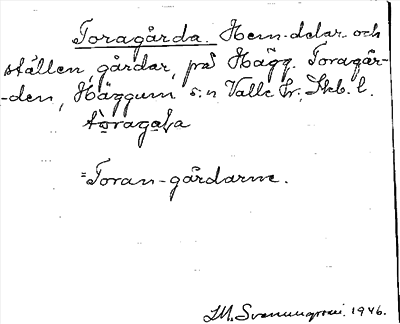 Toragårda. Hem-delar och
ställen, gårdar, på Hägg. Toragår-
-den, Häggum s:n Valle hr; Skb. l.
=Toran-gårdarne.
J.M. Svenungsson. 1946.